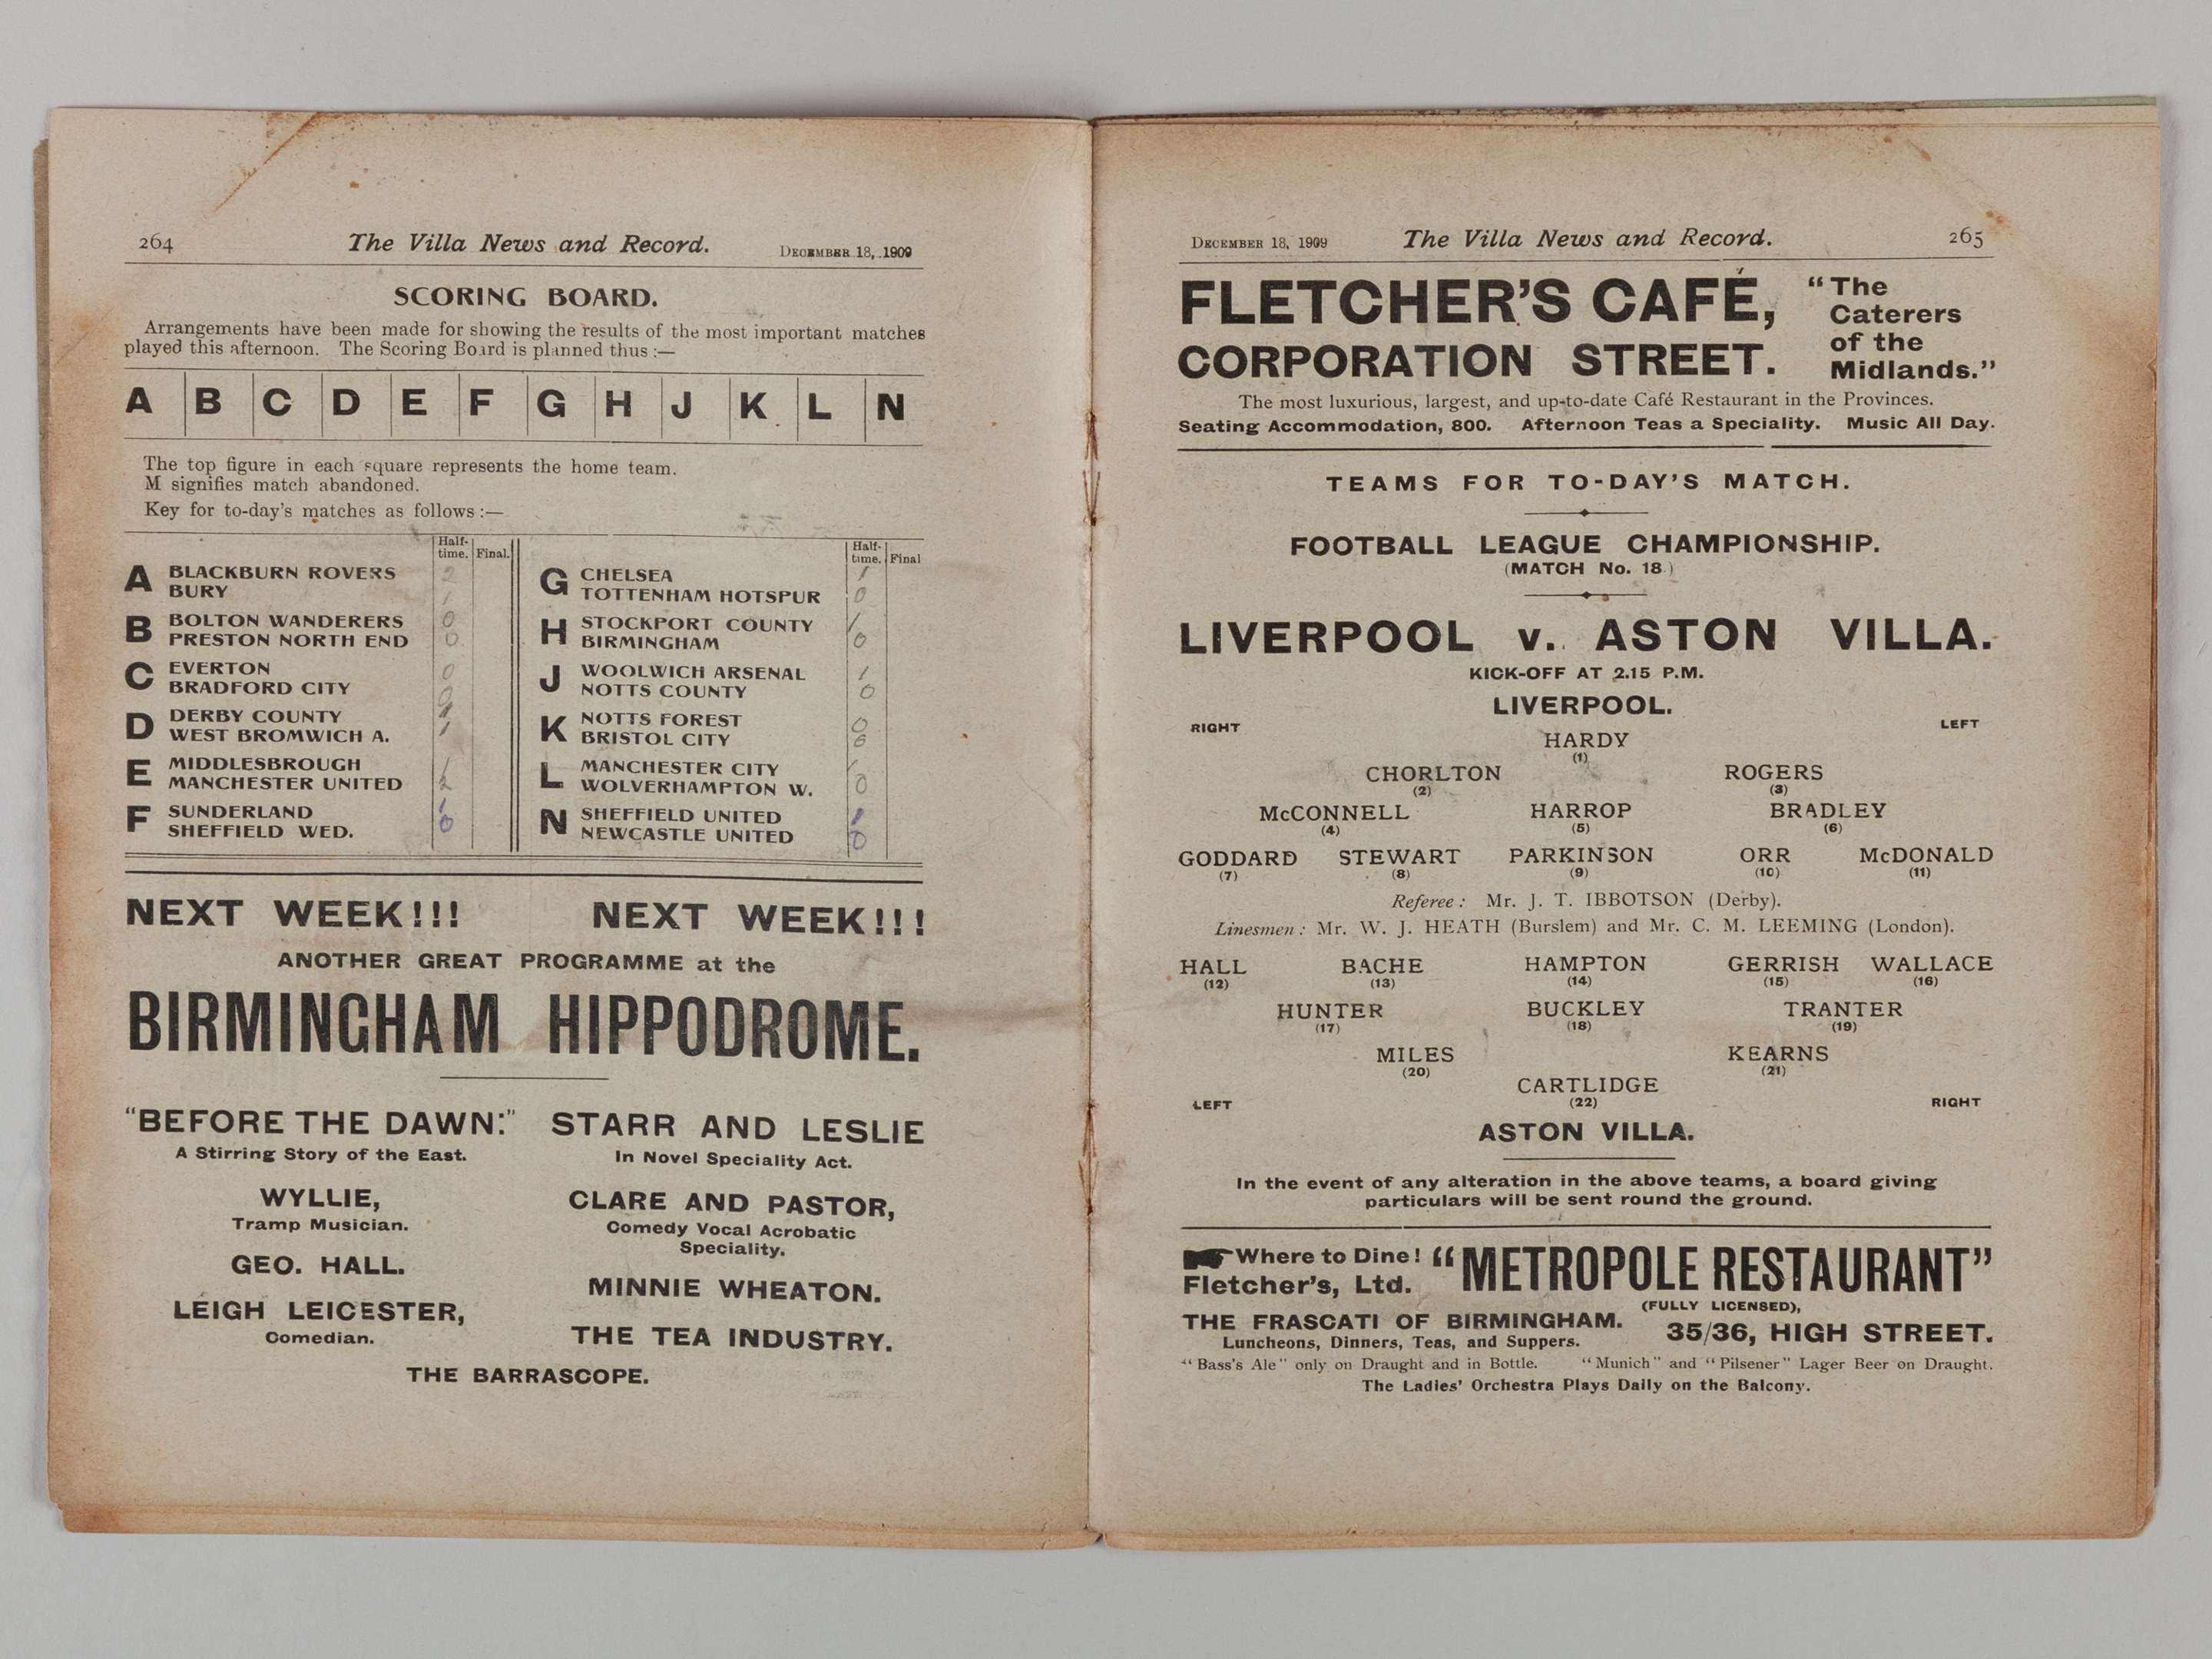 264 The Villa News and Record. DECEMBER 18, 1909
SCORING BOARD.
Arrangements have been made for showing the results of the most important matches
played this afternoon. The Scoring Board is planned thus :—
A B C D E F G H J K L N
The top figure in each square represents the home team.
M signifies match abandoned.
Key for to-day's matches as follows :—
Half-
time. Final.
A BLACKBURN ROVERS 2
BURY 1
B BOLTON WANDERERS 0
PRESTON NORTH END 0
C EVERTON 0
BRADFORD CITY 0
D DERBY COUNTY
WEST BROMWICH A. 1
E MIDDLESBROUGH 1
MANCHESTER UNITED 2
F SUNDERLAND 1
SHEFFIELD WED. 0
Half-
time. Final
G CHELSEA 1
TOTTENHAM HOTSPUR 0
H STOCKPORT COUNTY 1
BIRMINGHAM 0
J WOOLWICH ARSENAL 1
NOTTS COUNTY 0
K NOTTS FOREST 0
BRISTOL CITY
L MANCHESTER CITY
WOLVERHAMPTON W. 0
N SHEFFIELD UNITED
NEWCASTLE UNITED 0
NEXT WEEK!!! NEXT WEEK!!!
ANOTHER GREAT PROGRAMME at the
BIRMINGHAM HIPPODROME.
"BEFORE THE DAWN."
A Stirring Story of the East.
WYLLIE,
Tramp Musician.
GEO. HALL.
LEIGH LEICESTER,
Comedian.
STARR AND LESLIE
In Novel Speciality Act.
CLARE AND PASTOR,
Comedy Vocal Acrobatic
Speciality.
MINNIE WHEATON.
THE TEA INDUSTRY.
THE BARRASCOPE.
DECEMBER 18, 1909 The Villa News and Record. 265
FLETCHER'S CAFÉ,
CORPORATION STREET.
"The
Caterers
of the
Midlands."
The most luxurious, largest, and up-to-date Café Restaurant in the Provinces.
Seating Accommodation, 800. Afternoon Teas a Speciality. Music All Day.
TEAMS FOR TO-DAY'S MATCH.
FOOTBALL LEAGUE CHAMPIONSHIP.
(MATCH No. 18.)
LIVERPOOL v. ASTON VILLA.
KICK-OFF AT 2.15 P.M.
LIVERPOOL.
RIGHT LEFT
HARDY
(1)
CHORLTON ROGERS
(2) (3)
McCONNELL HARROP BRADLEY
(4) (5) (6)
GODDARD STEWART PARKINSON ORR McDONALD
(7) (8) (9) (10) (11)
Referee : Mr. J. T. IBBOTSON (Derby).
Linesmen : Mr. W. J. HEATH (Burslem) and Mr. C. M. LEEMING (London).
HALL BACHE HAMPTON GERRISH WALLACE
(12) (13) (14) (15) (16)
HUNTER BUCKLEY TRANTER
(17) (18) (19)
MILES KEARNS
(20) (21)
CARTLIDGE
(22)
LEFT RIGHT
ASTON VILLA.
In the event of any alteration in the above teams, a board giving
particulars will be sent round the ground.
Where to Dine! "METROPOLE RESTAURANT"
Fletcher's, Ltd.
(FULLY LICENSED),
THE FRASCATI OF BIRMINGHAM. 35/36, HIGH STREET.
Luncheons, Dinners, Teas, and Suppers.
"Bass's Ale" only on Draught and in Bottle. "Munich" and "Pilsener" Lager Beer on Draught.
The Ladies' Orchestra Plays Daily on the Balcony.